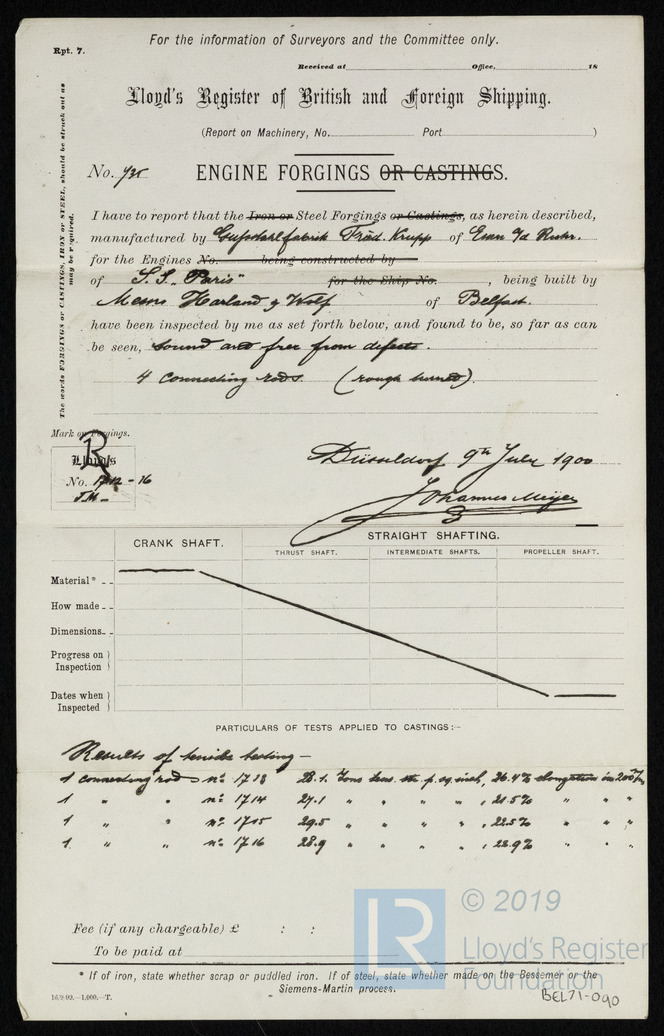 For the information of Surveyors and the Committee only.
Rpt. 7.
Received at Office, 18
Lloyd's Register of British and Foreign Shipping.
(Report on Machinery, No. Port )
No.
ENGINE FORGINGS OR CASTINGS.
The words FORGINGS or CASTINGS, IRON or STEEL, should be struck out as may be required.
I have to report that the Iron or Steel Forgings or Castings, as herein described,
manufactured by Gussstahlfabrik Fried. Krupp of Essen a/d Ruhr.
for the Engines No. being constructed by
of S.S. "Paris" for the Ship No. , being built by
Messrs Harland & Wolf of Belfast.
have been inspected by me as set forth below, and found to be, so far as can
be seen, sound and free from defects.
4 connecting rods (rough turned).
Mark on Forgings.
R
Lloyd's
No. 1712-16
J.M.
Düsseldorf 9th July 1900
Johannes Meyer
CRANK SHAFT.
STRAIGHT SHAFTING.
THRUST SHAFT. INTERMEDIATE SHAFTS. PROPELLER SHAFT.
Material*
How made
Dimensions
Progress on Inspection
Dates when Inspected
PARTICULARS OF TESTS APPLIED TO CASTINGS:—
Results of tensile testing —
1 connecting rod nº 1713 28.1 Tons tens. str. p. sq. inch, 26.4% elongation in
1 " " nº 1714 27.1 " " " " , 21.5% " " "
1 " " nº 1715 29.5 " " " " , 22.5% " " "
1 " " nº 1716 28.9 " " " " , 22.9% " " "
Fee (if any chargeable) £ : :
To be paid at
* If of iron, state whether scrap or puddled iron. If of steel, state whether made on the Bessemer or the
Siemens-Martin process.
16/9/99.—1,000.—T.
LR
© 2019
Lloyd's Register
Foundation
BEL71-090